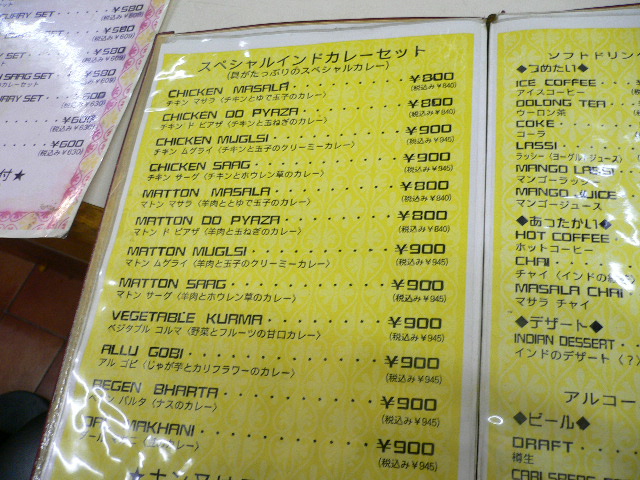 URRY SET ¥580
(税込み¥609)
¥580
(税込み¥609)
SET ¥580
(税込み¥609)
SAAG SET ¥600
(税込み¥630)
¥600
(税込み¥630)
¥600
(税込み¥630)
付★
スペシャルインドカレーセット
(具がたっぷりのスペシャルカレー)
CHICKEN MASALA ¥800
チキン マサラ〈チキンとゆで玉子のカレー〉 (税込み¥840)
CHICKEN DO PYAZA ¥800
チキン ド ピアザ〈チキンと玉ねぎのカレー〉 (税込み¥840)
CHICKEN MUGLSI ¥900
チキン ムグライ〈チキンと玉子のクリーミーカレー〉 (税込み¥945)
CHICKEN SAAG ¥900
チキン サーグ〈チキンとホウレン草のカレー〉 (税込み¥945)
MATTON MASALA ¥800
マトン マサラ〈羊肉ととゆで玉子のカレー〉 (税込み¥840)
MATTON DO PYAZA ¥800
マトン ド ピアザ〈羊肉と玉ねぎのカレー〉 (税込み¥840)
MATTON MUGLSI ¥900
マトン ムグライ〈羊肉と玉子のクリーミーカレー〉 (税込み¥945)
MATTON SAAG ¥900
マトン サーグ〈羊肉とホウレン草のカレー〉 (税込み¥945)
VEGETABLE KURMA ¥900
ベジタブル コルマ〈野菜とフルーツの甘口カレー〉 (税込み¥945)
ALLU GOBI ¥900
アル ゴビ〈じゃが芋とカリフラワーのカレー〉 (税込み¥945)
BEGEN BHARTA ¥900
バルタ〈ナスのカレー〉 (税込み¥945)
MAKHANI ¥900
カレー〉 (税込み¥945)
ソフトドリン
◆つめたい◆
ICE COFFEE
アイスコーヒー
OOLONG TEA
ウーロン茶
COKE
コーラ
LASSI
ラッシー〈ヨーグルトジュース〉
MANGO LASSI
マンゴーラッシー
MANGO JUICE
マンゴージュース
◆あったかい◆
HOT COFFEE
ホットコーヒー
CHAI
チャイ〈インドの
MASALA CHAI
マサラ チャイ
◆デザート◆
INDIAN DESSERT
インドのデザート〈?〉
アルコー
◆ビール◆
DRAFT
樽生